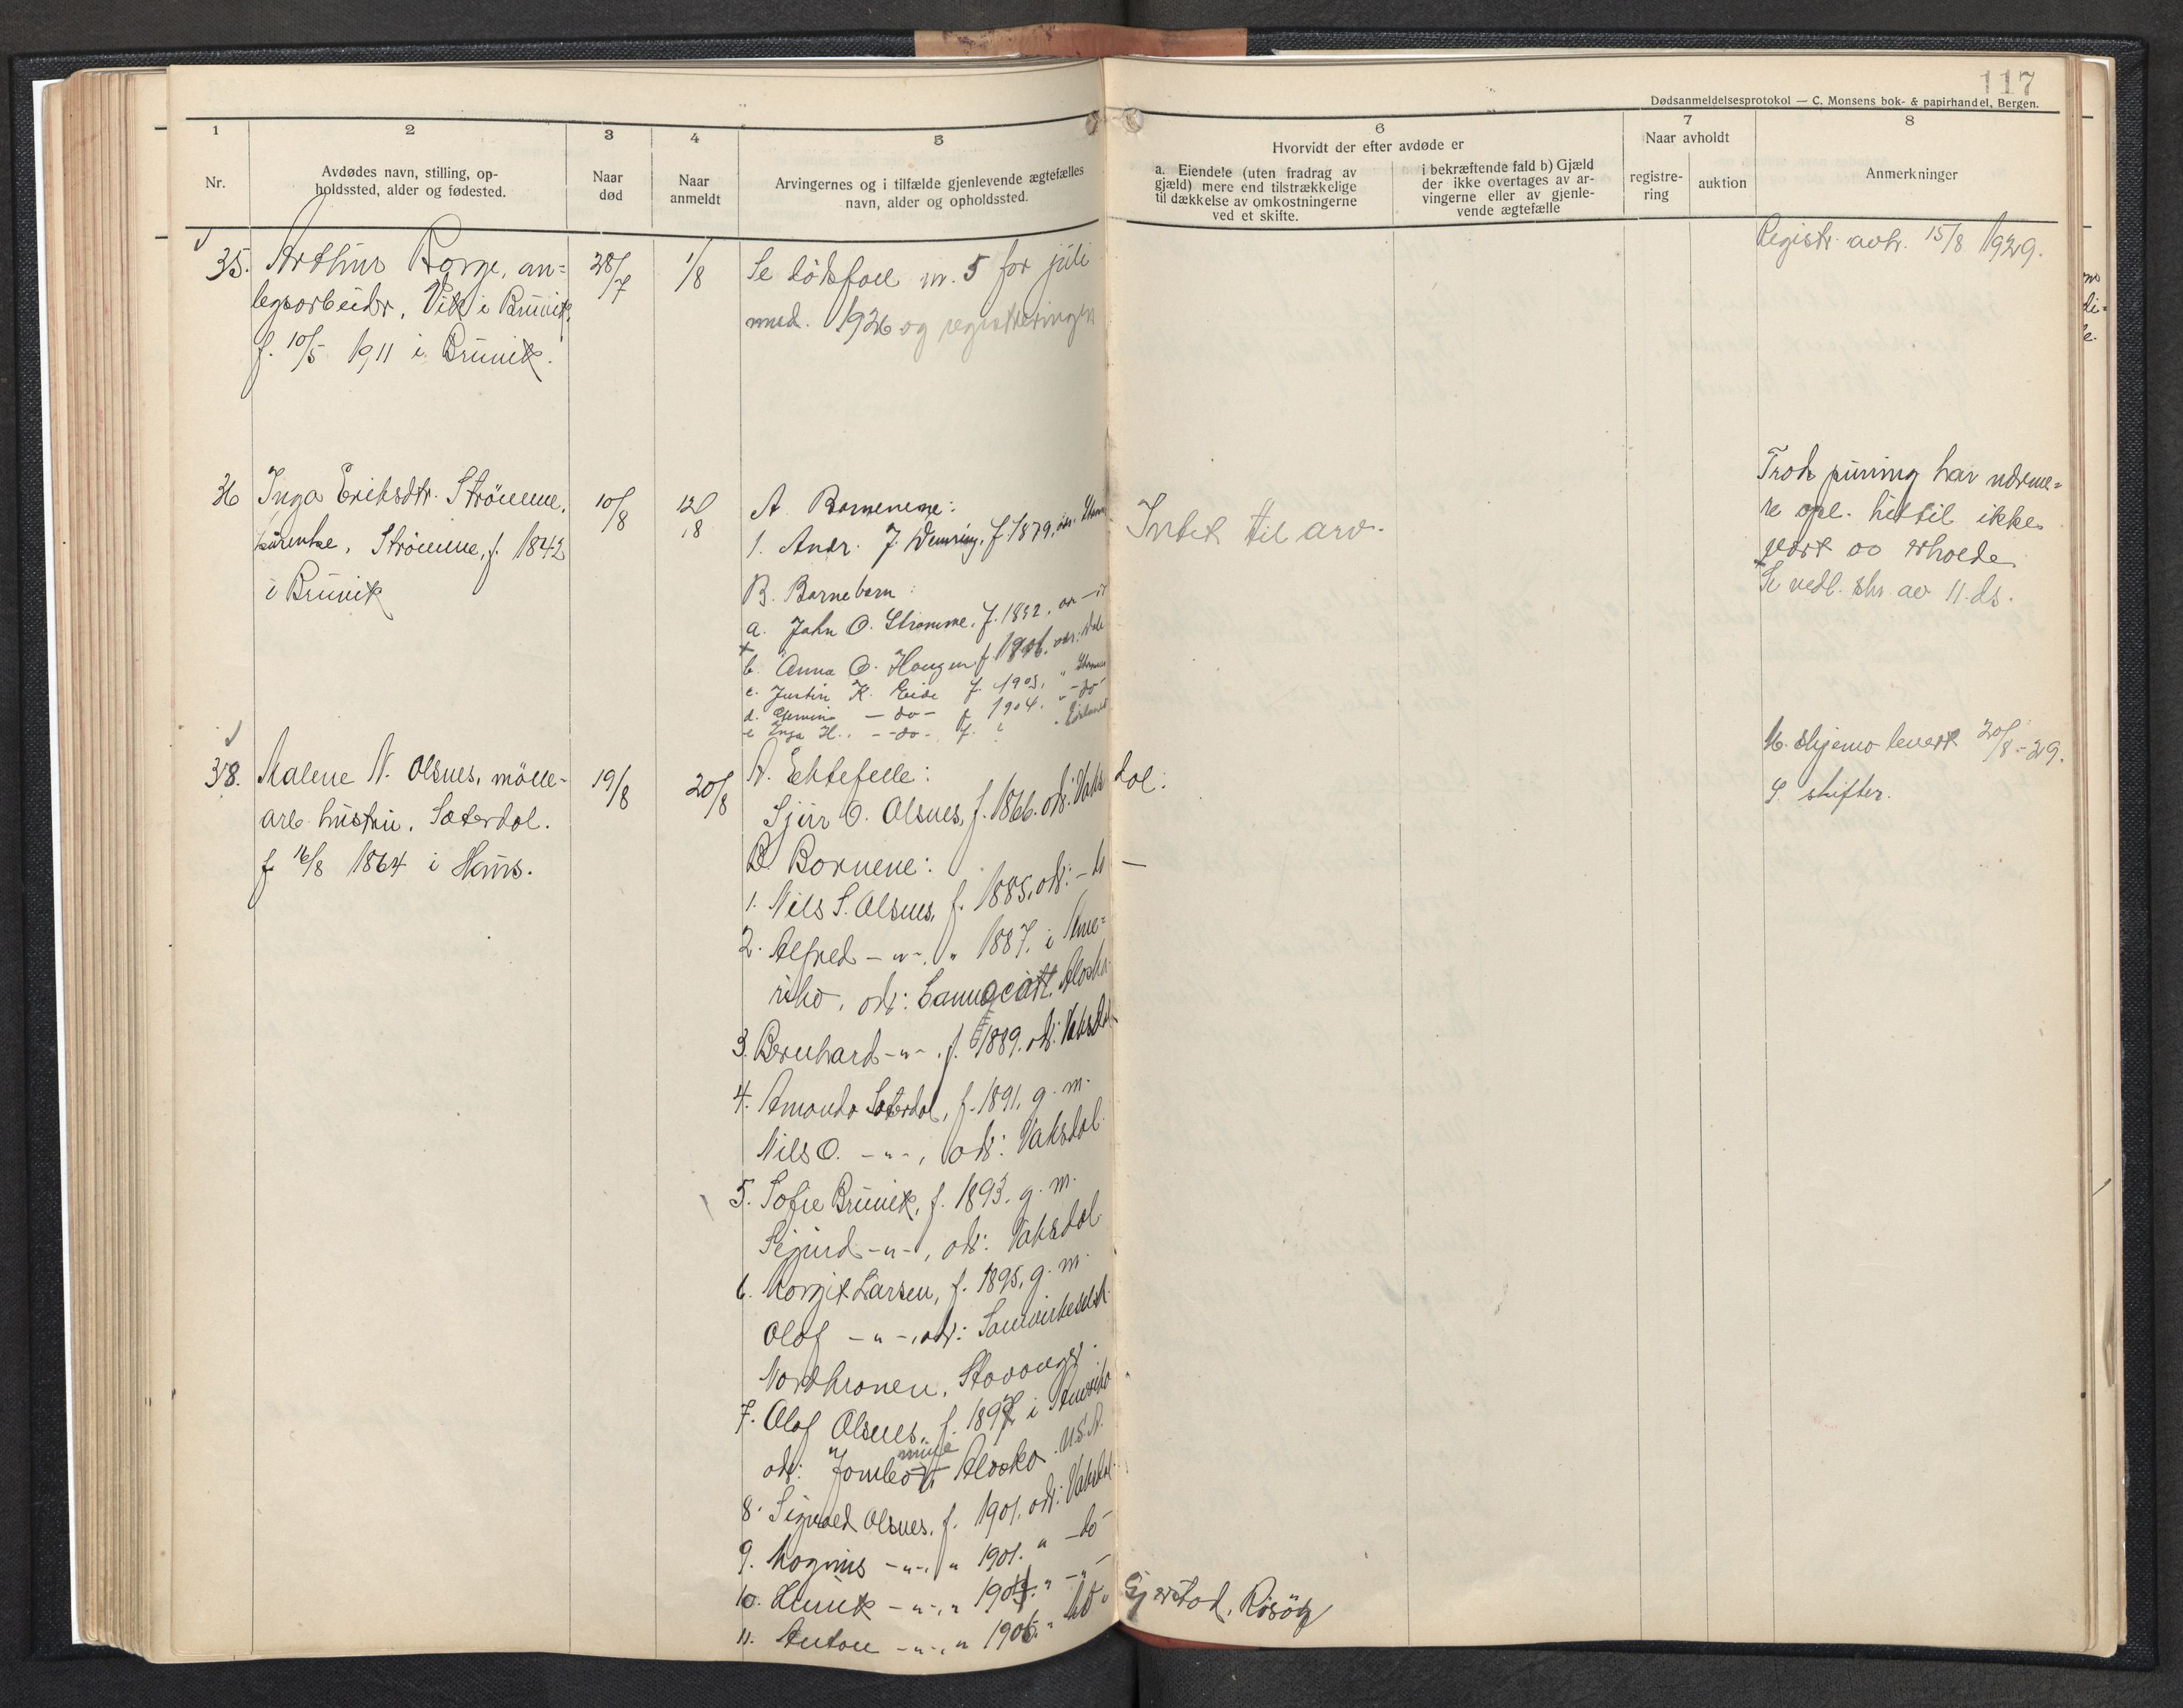 117
Dødsanmeldelsesprotokol — C. Monsens bok- & papirhandel, Bergen.
1
2
3
4
5
6
7
8
Nr.
Avdødes navn, stilling, op-
holdssted, alder og fødested.
Naar
død
Naar
anmeldt
Arvingernes og i tilfælde gjenlevende ægtefælles
navn, alder og opholdssted.
Hvorvidt der efter avdøde er
a. Eiendele (uten fradrag av
gjæld) mere end tilstrækkelige
til dækkelse av omkostningerne
ved et skifte.
i bekræftende fald b) Gjæld
der ikke overtages av ar-
vingerne eller av gjenle-
vende ægtefælle
Naar avholdt
registre-
ring
auktion
Anmerkninger
35. Arthur Borge, an=
legsarbeider, Vik i Bruvik,
f. 10/5 1911 i Bruvik.
28/7
1/8
Se dödsfall nr. 5 for juli
mnd. 1926 og registreringen
Registr. avh. 15/8 1929.
36 Inga Eriksdtr. Strömme,
Strömme, f. 1842
i Bruvik
10/8
12/8
A. Barnene:
1. Andr. J. f. 1879, adr.
B. Barnebarn:
a. John O. Stromme. f. 1892.
b. Anna O. Haugen f. 1906. adr. Dale
c. Justin K. Eide f. 1903. "
d. — do — f. 1904. " - do -
e Inga H. - do - f. ?
Intet til arv.
Trods purring har nærme=
re opl. hittil ikke
vært at erholde
Se vedl. skr. av 11. ds.
38. Malene N. Olsnes, mölle-
arb. hustru, Sæterdal.
f. 16/8 1864 i Haus.
19/8
20/8
A. Ektefelle:
Sjur O. Olsnes, f. 1866. adr: Vaksdal.
B Barnene:
1. Nils S. Olsnes, f. 1885, adr: — " —
2. Alfred — " —, " 1887, i Ame=
rika, adr: Alaska
3. Bernhard — " —, f. 1889. adr: Vaksdal
4. Amanda Sæterdal, f. 1891, g. m.
Nils O. — " —, adr: Vaksdal.
5. Sofie Bruvik, f. 1893. g. m.
Sigurd — " —, adr: Vaksdal
6. Margit Larsen, f. 1895, g. m.
Olaf — " —, adr: Samvirkelsk.
Nordkronen, Stavanger.
7. Olaf Olsnes, f. 1897 i Amerika
adr: mine Alaska U.S.A.
8. Sigvald Olsnes, f. 1901, adr: Vaksdal.
9. Magnus — " —, " 1901. " — do —
10. Henrik — " —, " 1904. " — " —
11. Anton — " —, " 1906. " Gjerstad, Risör
M. skjema levert 20/8 - 29.
S. skifter.